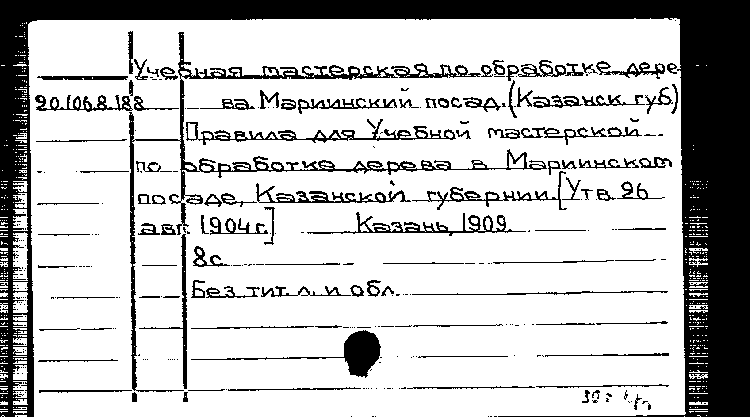 Учебная мастерская по обработке дере-
20.106.8.188 ва. Мариинский посад. (Казанск. губ)
Правила для Учебной мастерской
по обработке дерева в Мариинском
посаде, Казанской губернии. [Утв. 26
авг. 1904 г.] Казань, 1909.
8с.
Без тит. л. и обл.